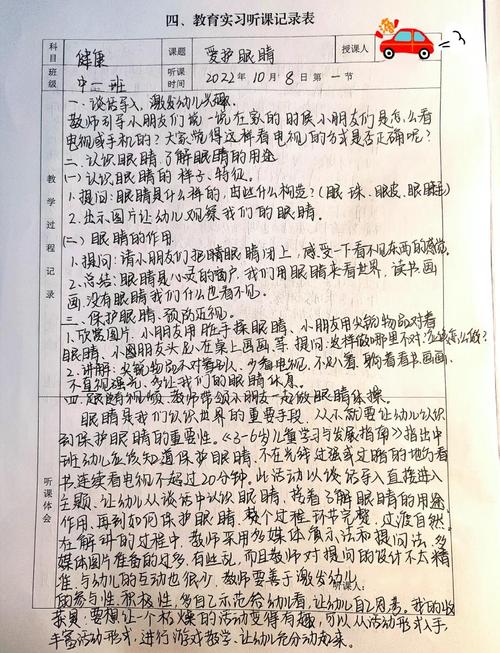 四、教育实习听课记录表
科目 健康 课题 爱护眼睛 授课人
班级 中一班 听课时间 2022年10月8日第一节
教学过程记录
一、谈话导入,激发幼儿兴趣.
教师引导小朋友们说一说在家的时候小朋友们是怎么看
电视或手机的?大家觉得这样看电视的方式是否正确呢?
二、认识眼睛,了解眼睛的用途
(一)认识眼睛的样子、特征。
1.提问:眼睛是什么样的,由些什么构造?(眼珠、眼皮、眼睫毛)
2.出示图片让幼儿观察我们的眼睛.
(二)眼睛的作用.
1.提问:请小朋友们把眼睛闭上,感受一下看不见东西的感觉
2.总结:眼睛是心灵的窗户,我们用眼睛来看世界,读书画
画,没有眼睛我们什么也看不见.
三、保护眼睛,预防近视.
1.欣赏图片,小朋友用脏手揉眼睛、小朋友用尖锐物品对着
眼睛、小朋友头趴在桌上画画等.提问:这样做哪里不对,应该怎么做?
2.讲解:尖锐物品不对着别人,少看电视,不趴着、躺着看书画画
不直视强光,多让我们的眼睛休息.
四、跟随视频,教师带领小朋友一起做眼睛体操.
听课体会
眼睛是我们认识世界的重要手段,从小就要让幼儿认识
到保护眼睛的重要性。《3-6岁儿童学习与发展指南》指出中
班幼儿应该知道保护眼睛,不在光线过强或过暗的地方看
书,连续看电视不超过20分钟。此活动以谈话导入直接进入
主题,让幼儿从谈话中认识眼睛,接着了解眼睛的用途
作用,再到如何保护眼睛,整个过程环节完整,过渡自然
在解说的过程中,教师采用多媒体演示法和提问法,多
媒体图片准备的过多,有些乱,而且教师对提问的设计不太精
准,与幼儿的互动也很少,教师要善于激发幼儿
听课人:
的参与性,积极性,多自己示范给幼儿看,让幼儿自己思考。我的收
获是:要想让个枯燥的活动变得有趣,可以从活动形式入手,
丰富活动形式,进行游戏教学,让幼儿充分动起来。